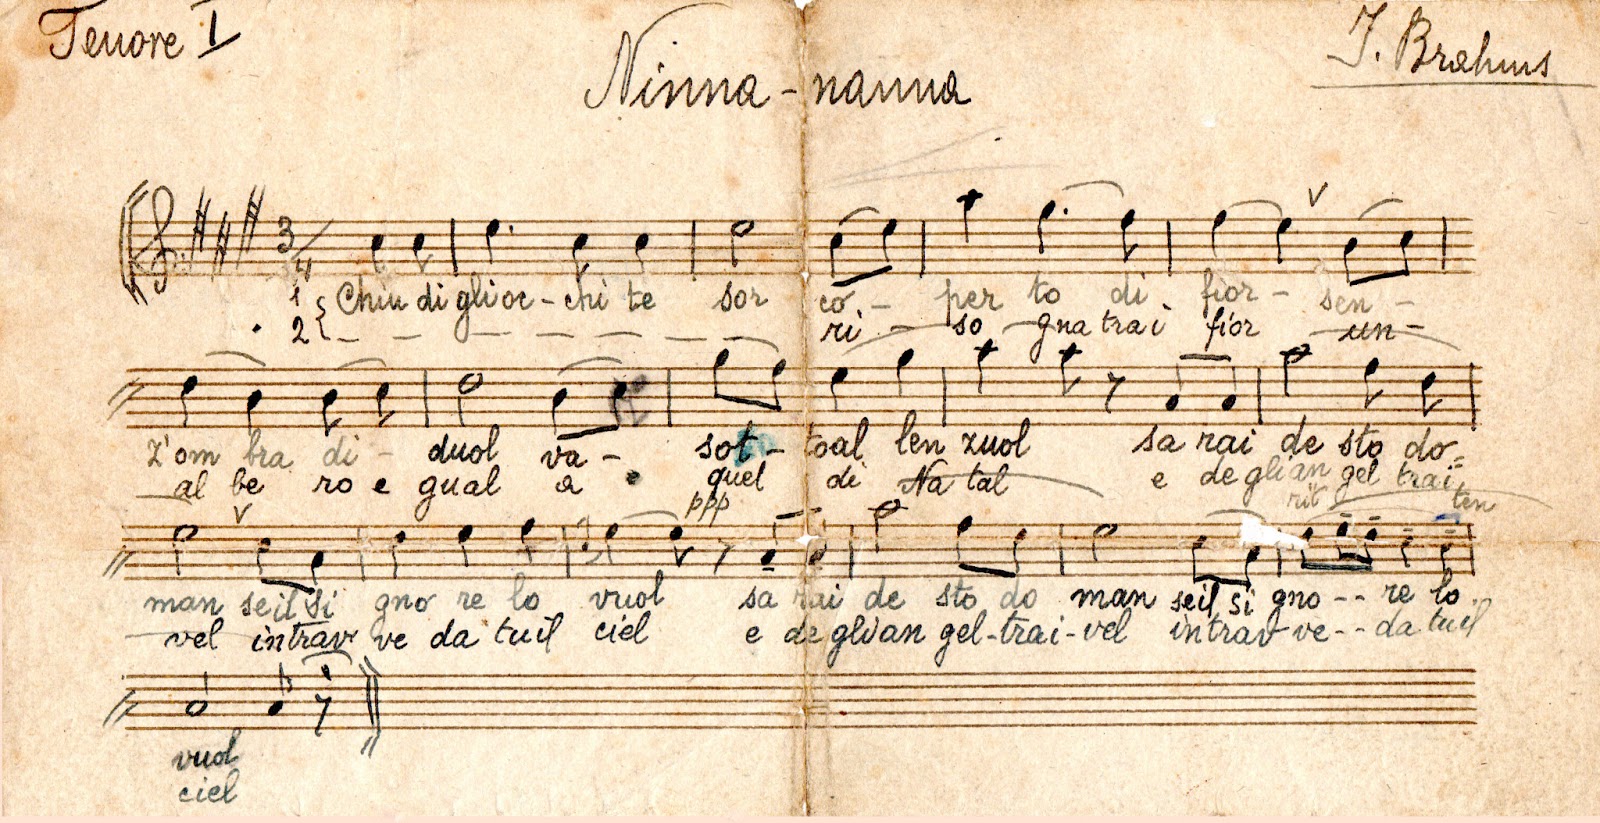 Tenore I
J. Brahms
Ninna-nanna
3/4
1 Chiu di gli oc - chi te sor co - per to di fior - sen -
2 ri - so - gna trai fior un -
z'om bra di - duol va - sot - toal len zuol sa rai de sto do-
al be ro e gual a quel di Na tal e de glian gel trai
ppp rit ten
man seil si gno re lo vuol sa rai de sto do man seil si gno -- re lo
vel in trav ve da tuil ciel e de glian gel-trai-vel in trav-ve -- da tuil
vuol
ciel